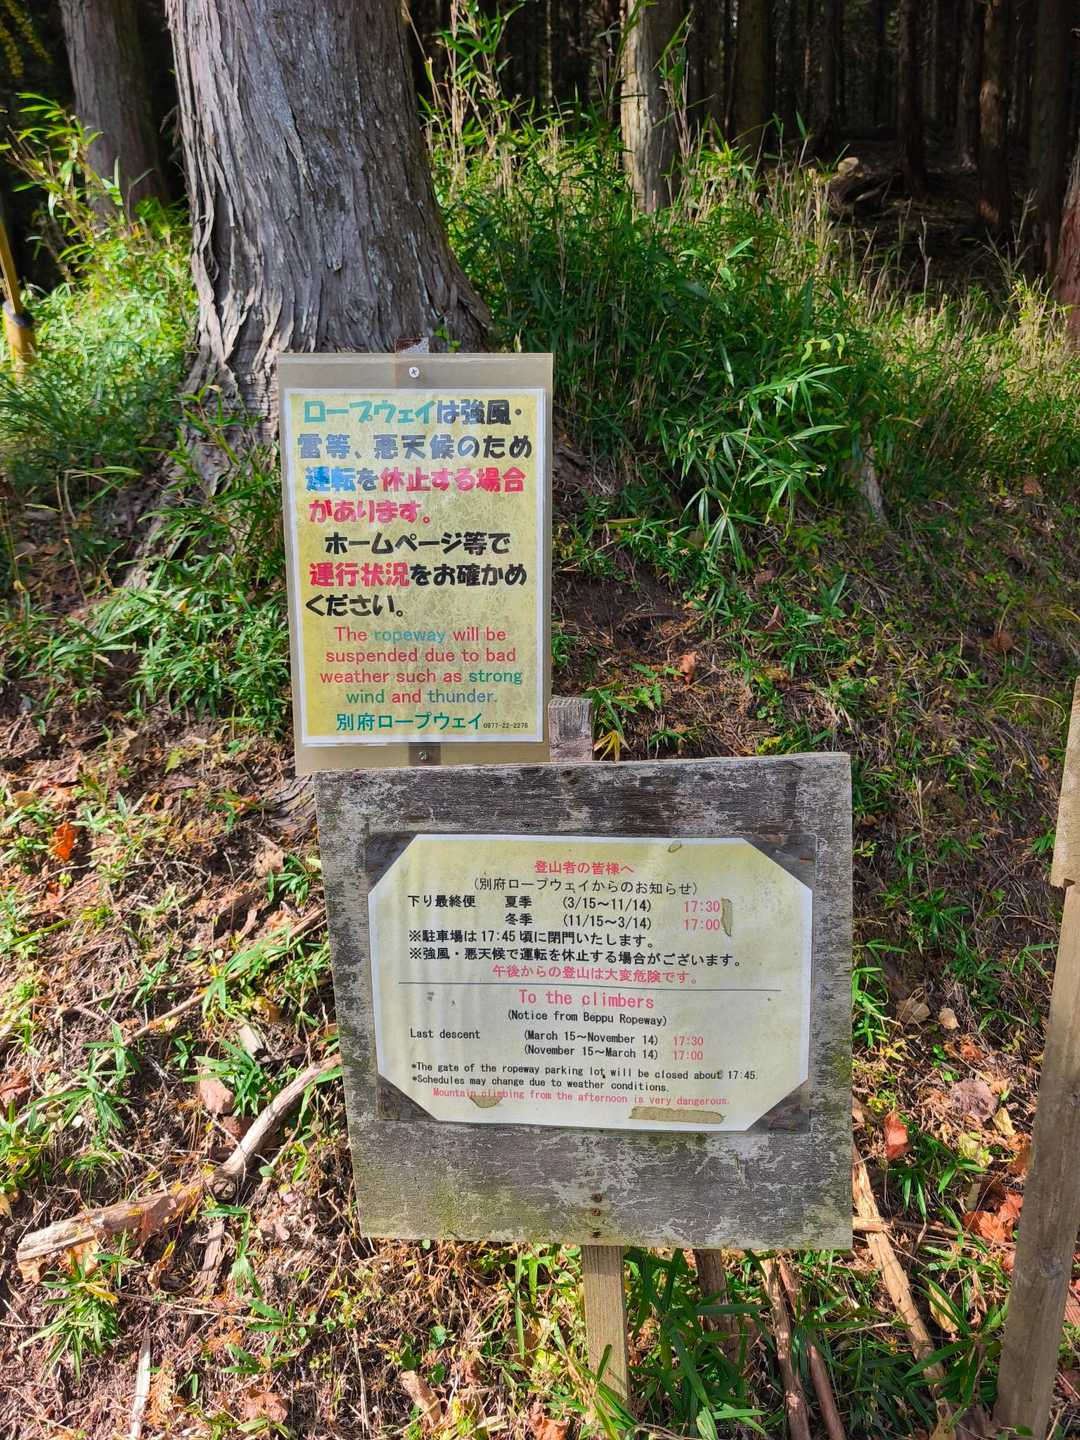 ロープウェイは強風・
雷等、悪天候のため
運転を休止する場合
があります。
ホームページ等で
運行状況をお確かめ
ください。
The ropeway will be
suspended due to bad
weather such as strong
wind and thunder.
別府ロープウェイ 0977-22-2278
登山者の皆様へ
(別府ロープウェイからのお知らせ)
下り最終便 夏季 (3/15～11/14) 17:30
冬季 (11/15～3/14) 17:00
※駐車場は17:45頃に閉門いたします。
※強風・悪天候で運転を休止する場合がございます。
午後からの登山は大変危険です。
To the climbers
(Notice from Beppu Ropeway)
Last descent (March 15～November 14) 17:30
(November 15～March 14) 17:00
*The gate of the ropeway parking lot will be closed about 17:45.
*Schedules may change due to weather conditions.
Mountain climbing from the afternoon is very dangerous.